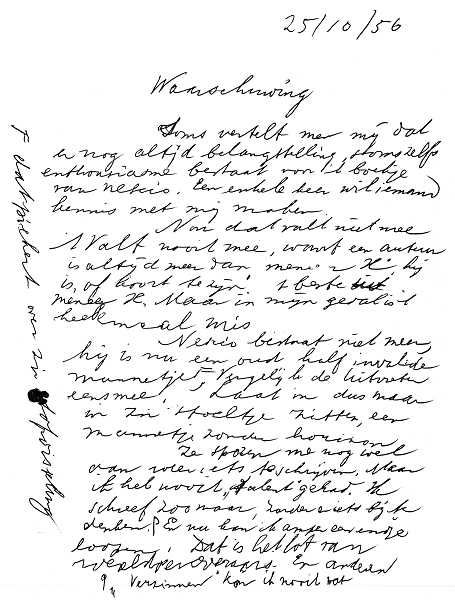 25/10/56
Waarschuwing
Soms vertelt men mij dat
er nog altijd belangstelling, soms zelfs
enthousiasme bestaat voor 't boekje
van Nescio. Een enkele keer wil iemand
kennis met mij maken.
Nou dat valt niet mee
't Valt nooit mee, want een auteur
is altijd meer dan meneer X, hij
is, of hoort te zijn 't beste
meneer X. Maar in mijn geval is 't
heelemaal mis
Nescio bestaat niet meer,
hij is nu een oud half invalide
mannetje Vergelijk de
eens mee, Laat in dus maar
in zijn stoeltje zitten, een
mannetje zonder horizon.
Ze sporen me nog wel
aan weer iets te schrijven. Maar
ik heb nooit „talent" gehad. Ik
schreef zoo maar, zonder er iets bij te
denken. En nu kan ik
loopen. Dat is het lot van
wereldveroveraars. En anderen
„Verzinnen" kon ik nooit wat
dat piekert over zijn stoelgang